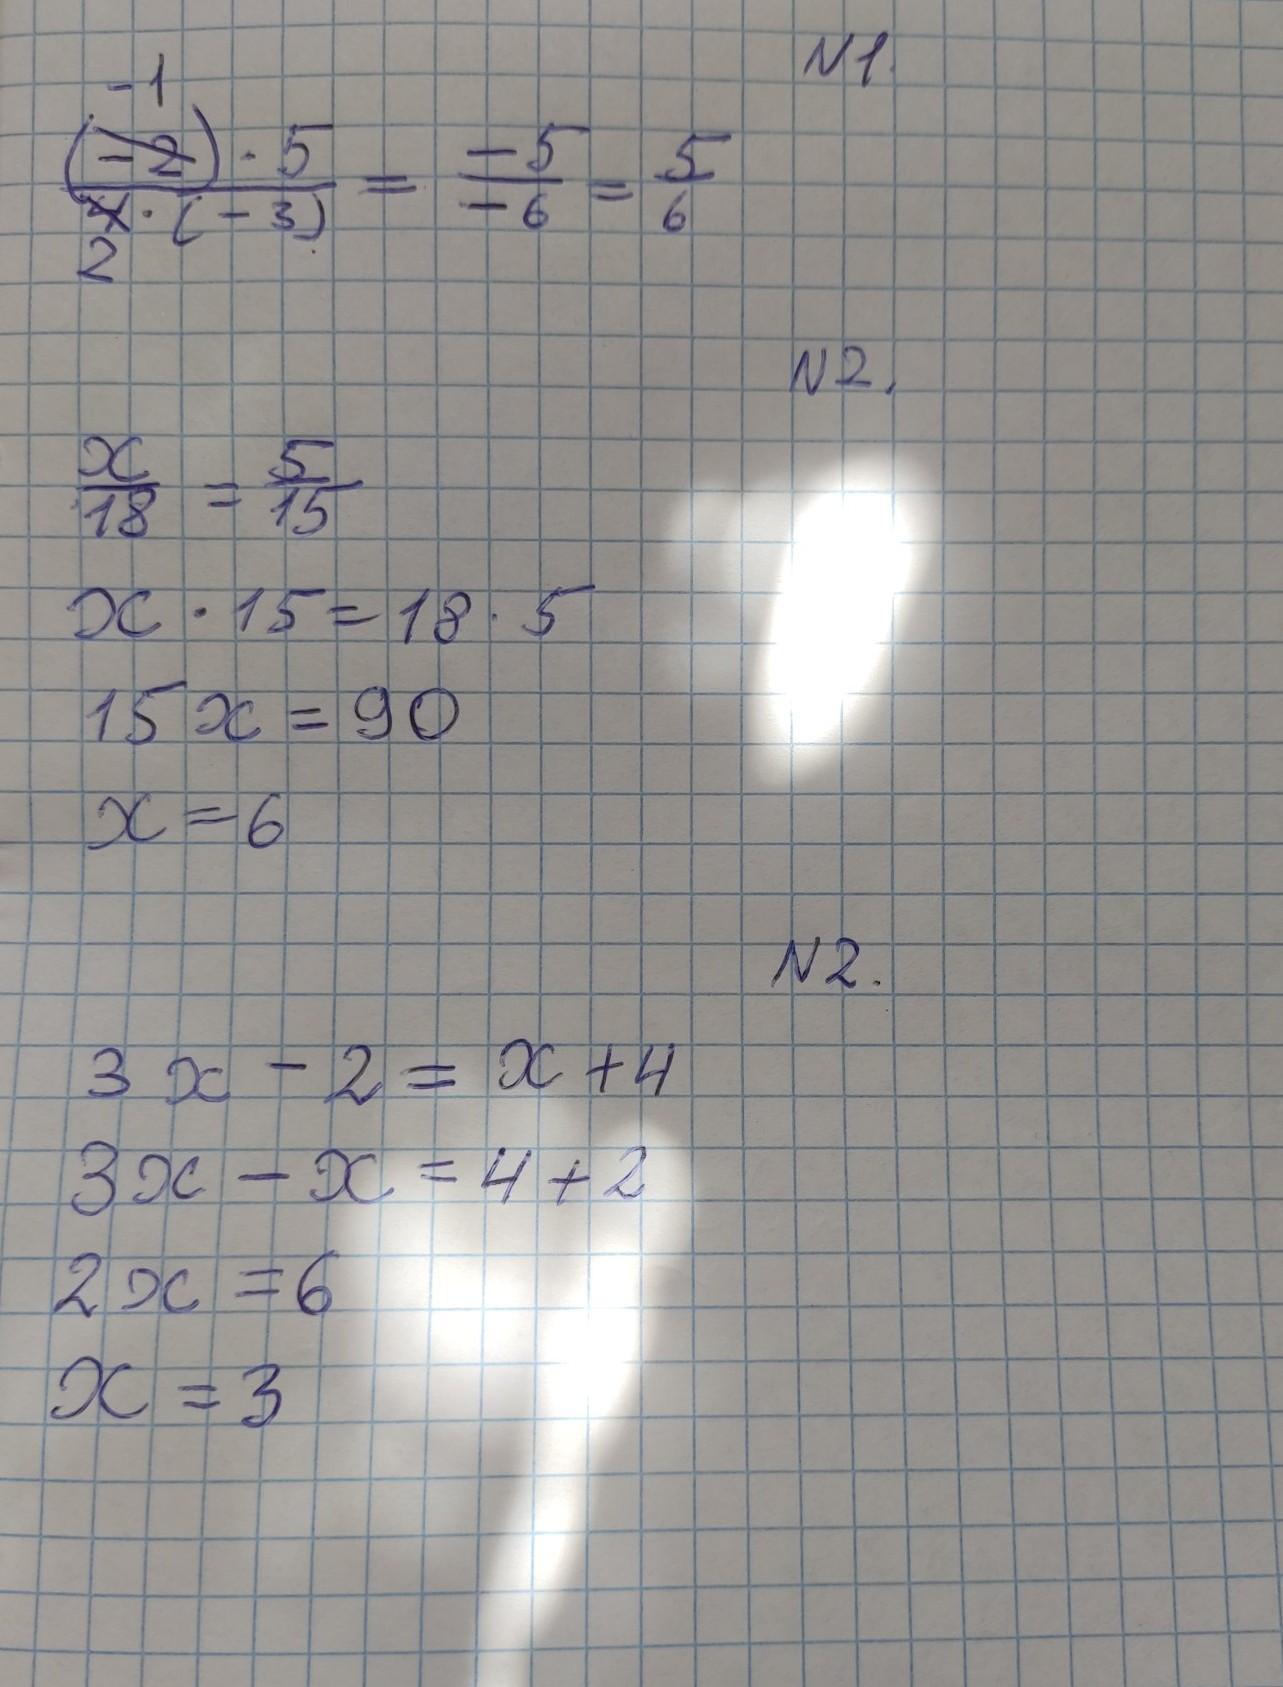 N1.
-1
(-2) · 5 / 4 · (-3) = -5 / -6 = 5 / 6
2
N2.
x / 18 = 5 / 15
x · 15 = 18 · 5
15x = 90
x = 6
N2.
3x - 2 = x + 4
3x - x = 4 + 2
2x = 6
x = 3